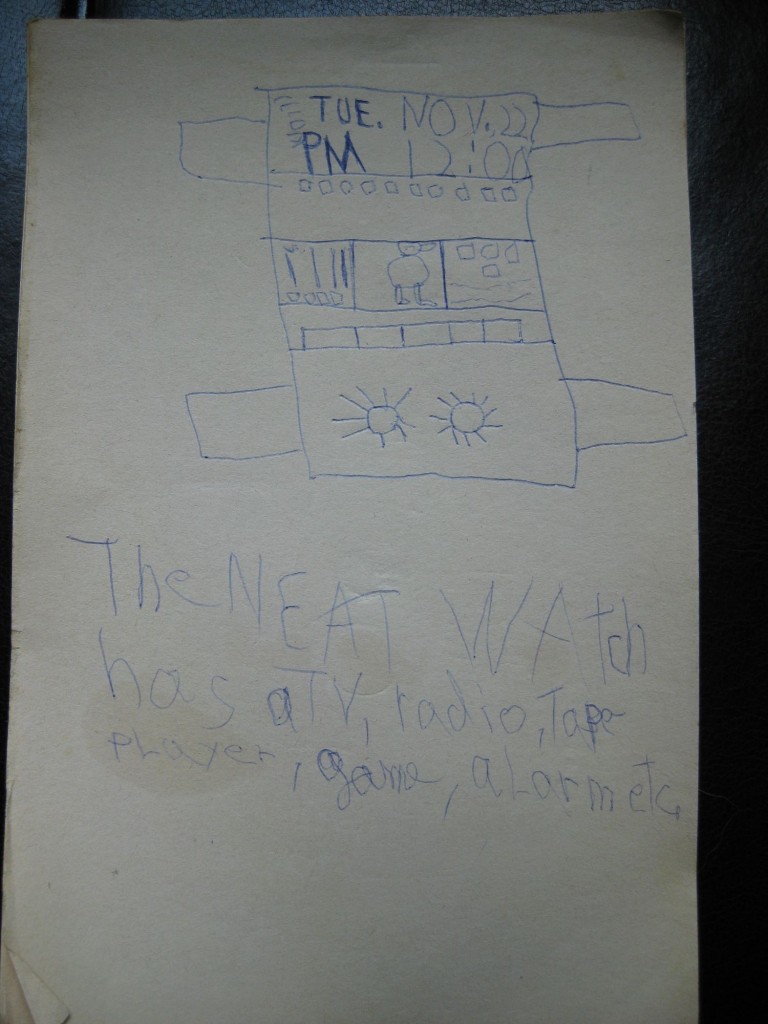 TUE. NOV. 22
PM 12:00
The NEAT WAtch
has a TV, radio, Tape
PLayer, game, aLarm etc.